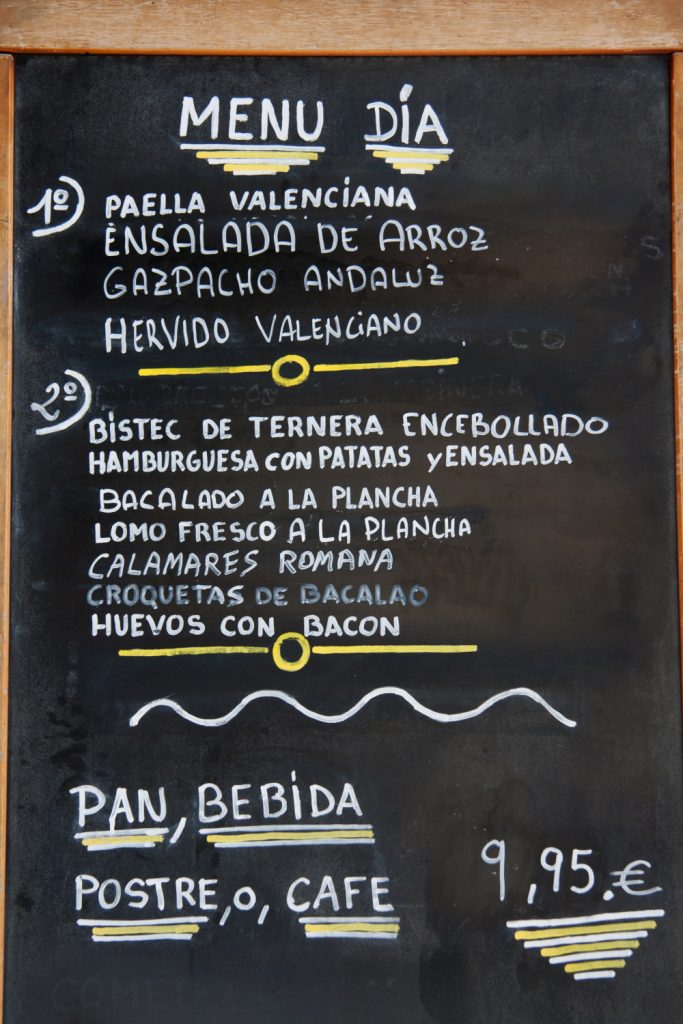 MENU DÍA
1º PAELLA VALENCIANA
ENSALADA DE ARROZ
GAZPACHO ANDALUZ
HERVIDO VALENCIANO
2º
BISTEC DE TERNERA ENCEBOLLADO
HAMBURGUESA CON PATATAS y ENSALADA
BACALADO A LA PLANCHA
LOMO FRESCO A LA PLANCHA
CALAMARES ROMANA
CROQUETAS DE BACALAO
HUEVOS CON BACON
PAN, BEBIDA
POSTRE, o, CAFE 9,95.€